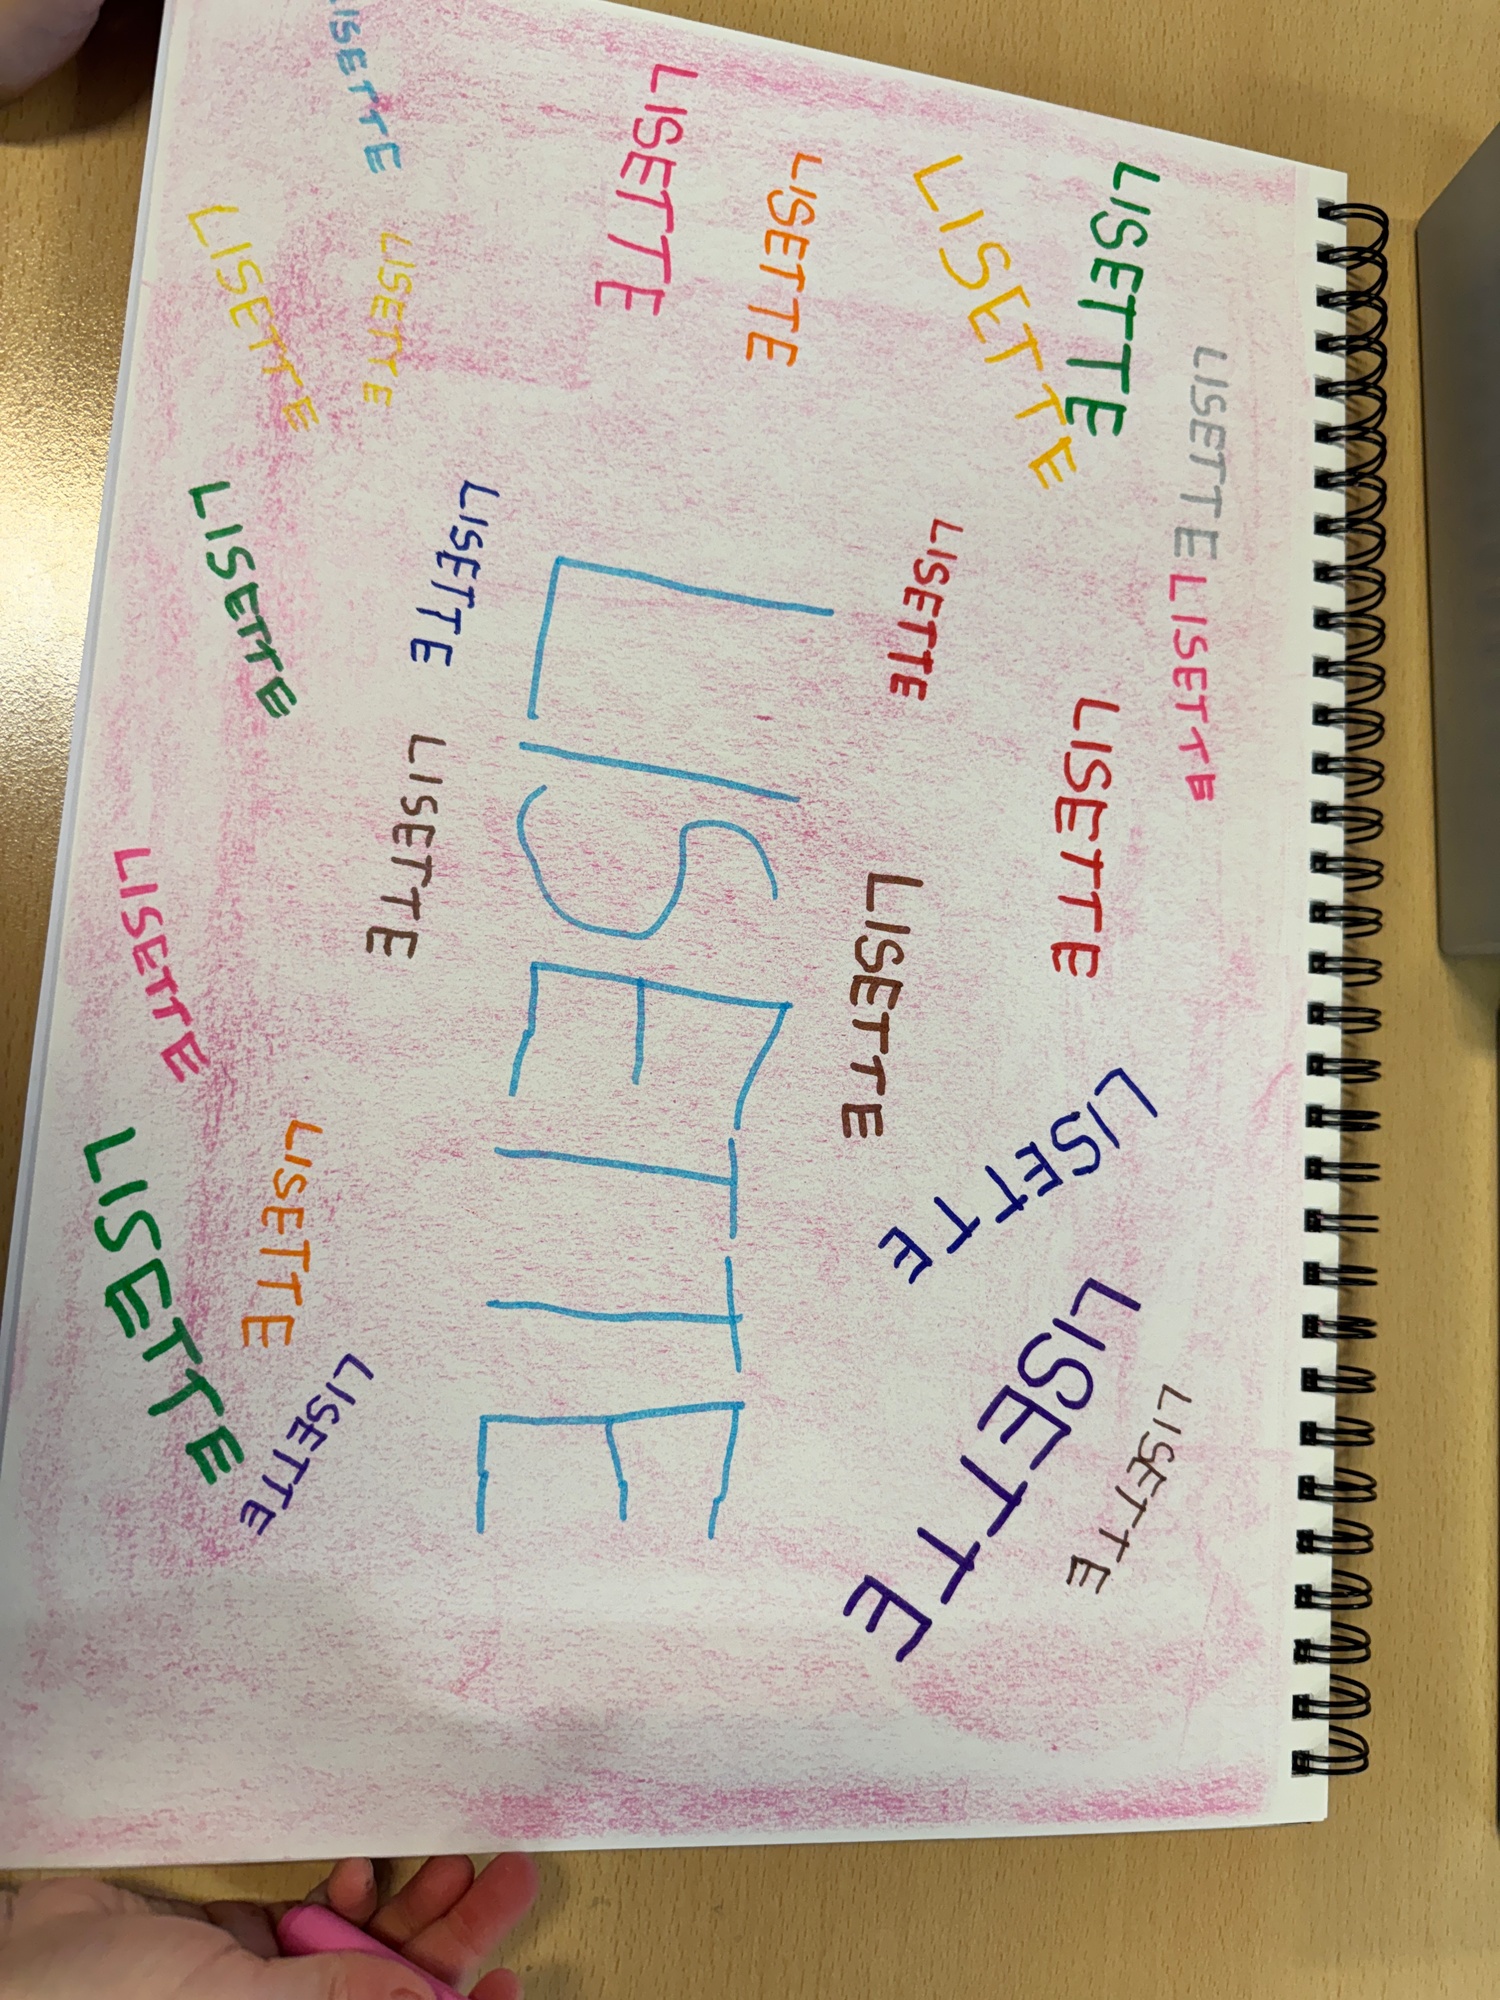 LISETTE
LISETTE
LISETTE
LISETTE
LISETTE
LISETTE
LISETTE
LISETTE
LISETTE
LISETTE
LISETTE
LISETTE
LISETTE
LISETTE
LISETTE
LISETTE
ISETTE
LISETTE
LISETTE
LISETTE
LISETTE
LISETTE
LISETTE